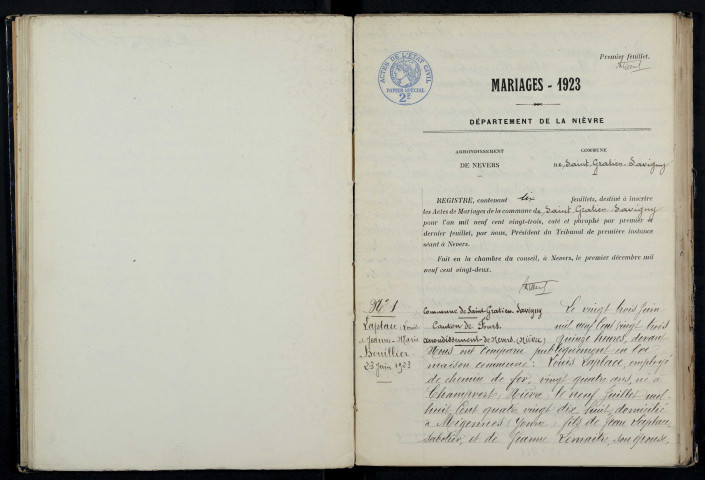 Premier feuillet.
ACTES DE L'ÉTAT CIVIL
PAPIER SPÉCIAL
2F
MARIAGES - 1923
DÉPARTEMENT DE LA NIÈVRE
ARRONDISSEMENT
DE NEVERS
COMMUNE
DE Saint Gratien-Savigny
REGISTRE, contenant six feuillets, destiné à inscrire
les Actes de Mariages de la commune de Saint Gratien Savigny
pour l'an mil neuf cent vingt-trois, coté et paraphé par premier et
dernier feuillet, par nous, Président du Tribunal de première instance
séant à Nevers.
Fait en la chambre du conseil, à Nevers, le premier décembre mil
neuf cent vingt-deux.
N° 1
Laplace, Louis
et Jeanne-Marie
Bouillier
23 juin 1923
Commune de Saint-Gratien-Savigny
Canton de Fours.
Arrondissement de Nevers (Nièvre)
Le vingt trois Juin
mil neuf Cent vingt trois
quinze heures, devant
Nous ont comparu publiquement en la
maison commune : Louis Laplace, employé
de chemin de fer, vingt quatre ans, né à
Champvert, Nièvre, le neuf Juillet mil
huit Cent quatre vingt dix huit, domicilié
à Migennes, Yonne, fils de Jean Laplace,
sabotier, et de Jeanne Lemaitre, son épouse,